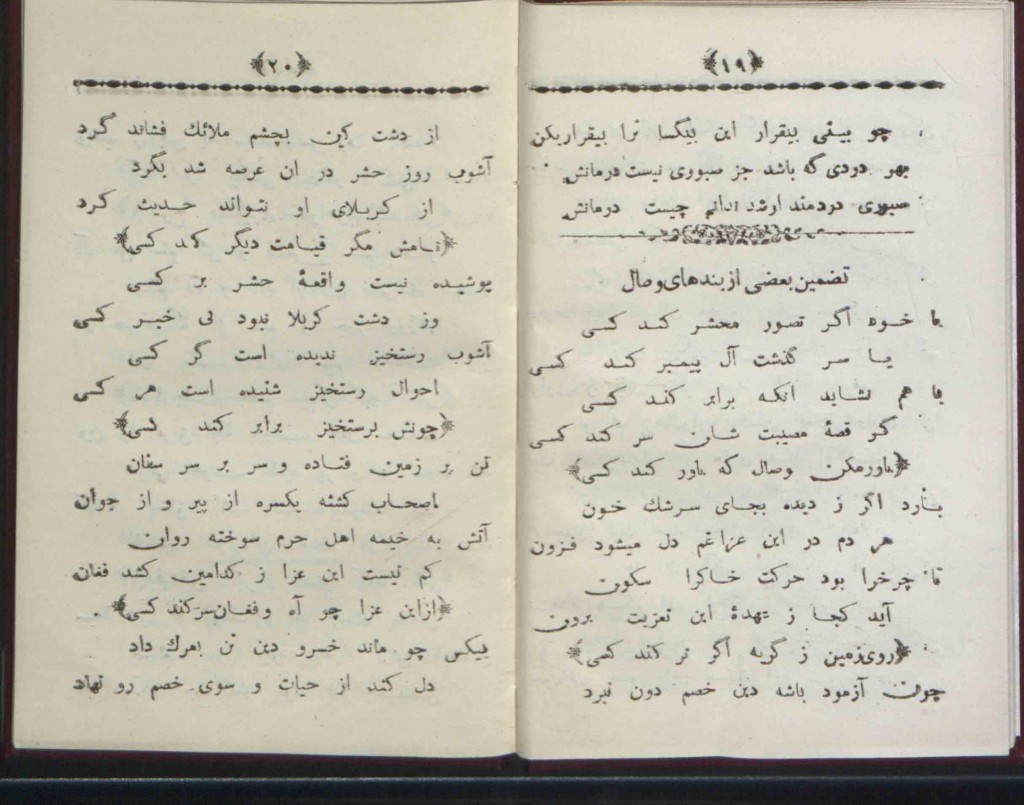 ﴿١٩﴾
چو بینی بیقرار این بیکسا ترا بیقرار بکن
بهر دردی که باشد جز صبوری نیست درمانش
صبوری دردمند ار شد ندانم چیست درمانش
تضمین بعضی از بندهای وصال
با خود اگر تصور محشر کند کسی
یا سر گذشت آل پیمبر کند کسی
با هم نشاید انکه برابر کند کسی
گر قصهٔ مصیبت شان سر کند کسی
﴿باور مکن وصال که باور کند کسی﴾
بارد اگر ز دیده بجای سرشك خون
هر دم در این عزا غم دل میشود فزون
تا چرخرا بود حرکت خاکرا سکون
آید کجا ز عهدهٔ این تعزیت برون
﴿روی زمین ز گریه اگر تر کند کسی﴾
چون آزمود باشه دین خصم دون نبرد
﴿٢٠﴾
از دشت کین بچشم ملائك فشاند گرد
آشوب روز حشر در ان عرصه شد بگرد
از کربلای او نتواند حدیث کرد
﴿نامش مگر قیامت دیگر کند کسی﴾
پوشیده نیست واقعهٔ حشر بر کسی
وز دشت کربلا نبود بی خبر کسی
آشوب رستخیز ندیده است گر کسی
احوال رستخیز شنیده است هر کسی
﴿چونش برستخیز برابر کند کسی﴾
تن بر زمین فتاده و سر بر سر سنان
اصحاب کشته یکسره از پیر و از جوان
آتش به خیمه اهل حرم سوخته روان
کم نیست این عزا ز کدامین کشد فغان
﴿از این عزا چو آه و فغان سر کند کسی﴾
بیکس چو ماند خسرو دین تن بمرك داد
دل کند از حیات و سوی خصم رو نهاد